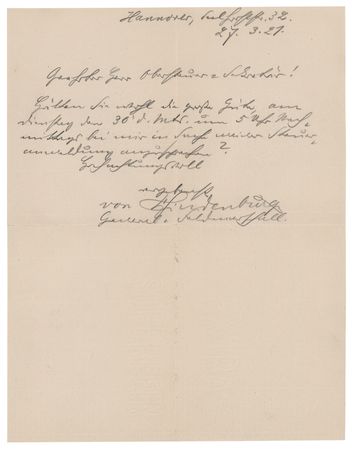 Hannover, Seelhorststr. 32.
27. 3. 21.
Geehrter Herr Obersteuer-Sekretär!
Hätten Sie wohl die große Güte, am
Dienstag den 30. d. Mts. um 5 Uhr Nach-
mittags bei mir in Sachen meiner Steuer-
anmeldung anzusprechen?
Hochachtungsvoll
ergebenst
von Hindenburg
General-Feldmarschall.